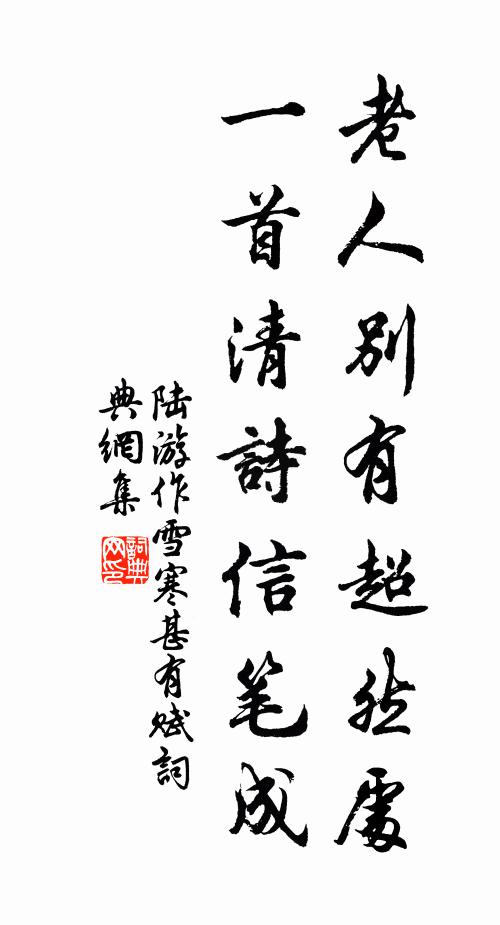 老人別有超然處
一首清詩信笔成
陆游作雪寒甚有赋詞
典網集
詞典
网印